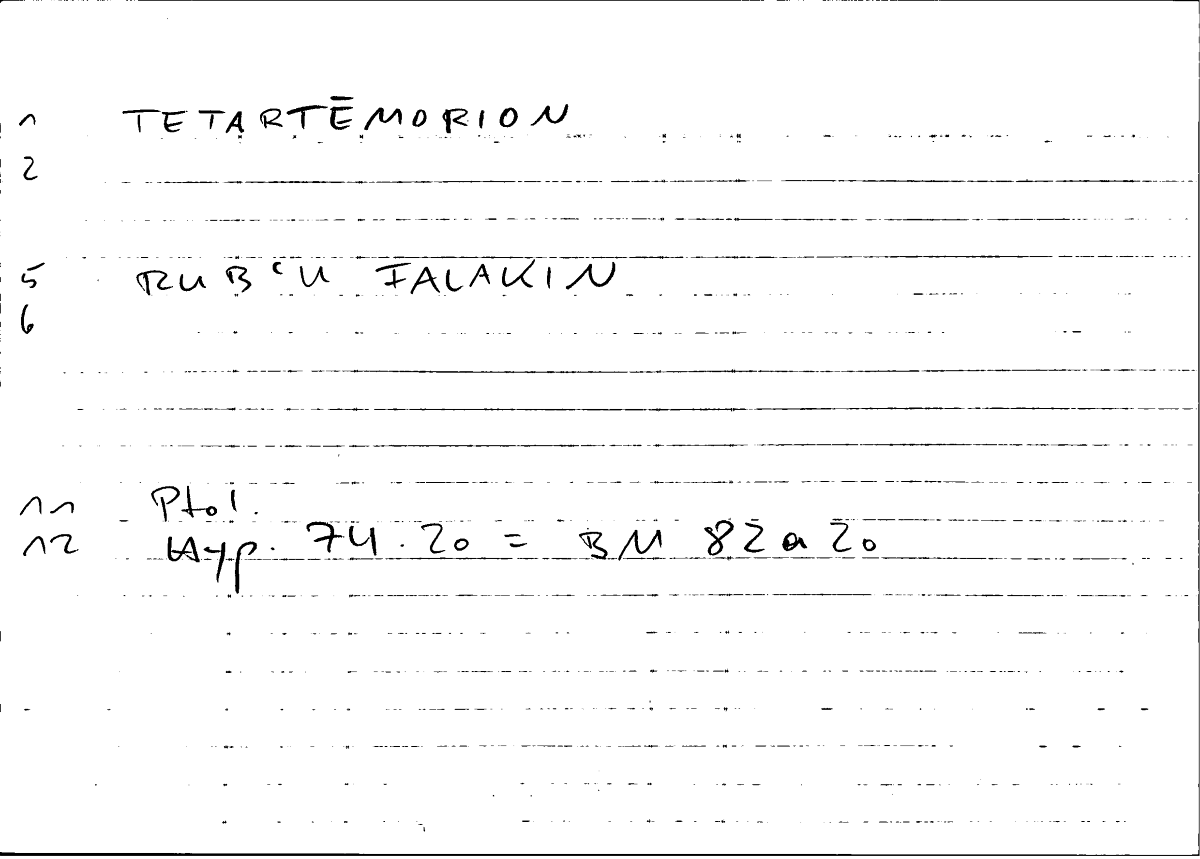 1 TETARTĒMORION
2
5 RUBʿU FALAKIN
6
11 Ptol.
12 Hyp. 74.20 = BM 82a20